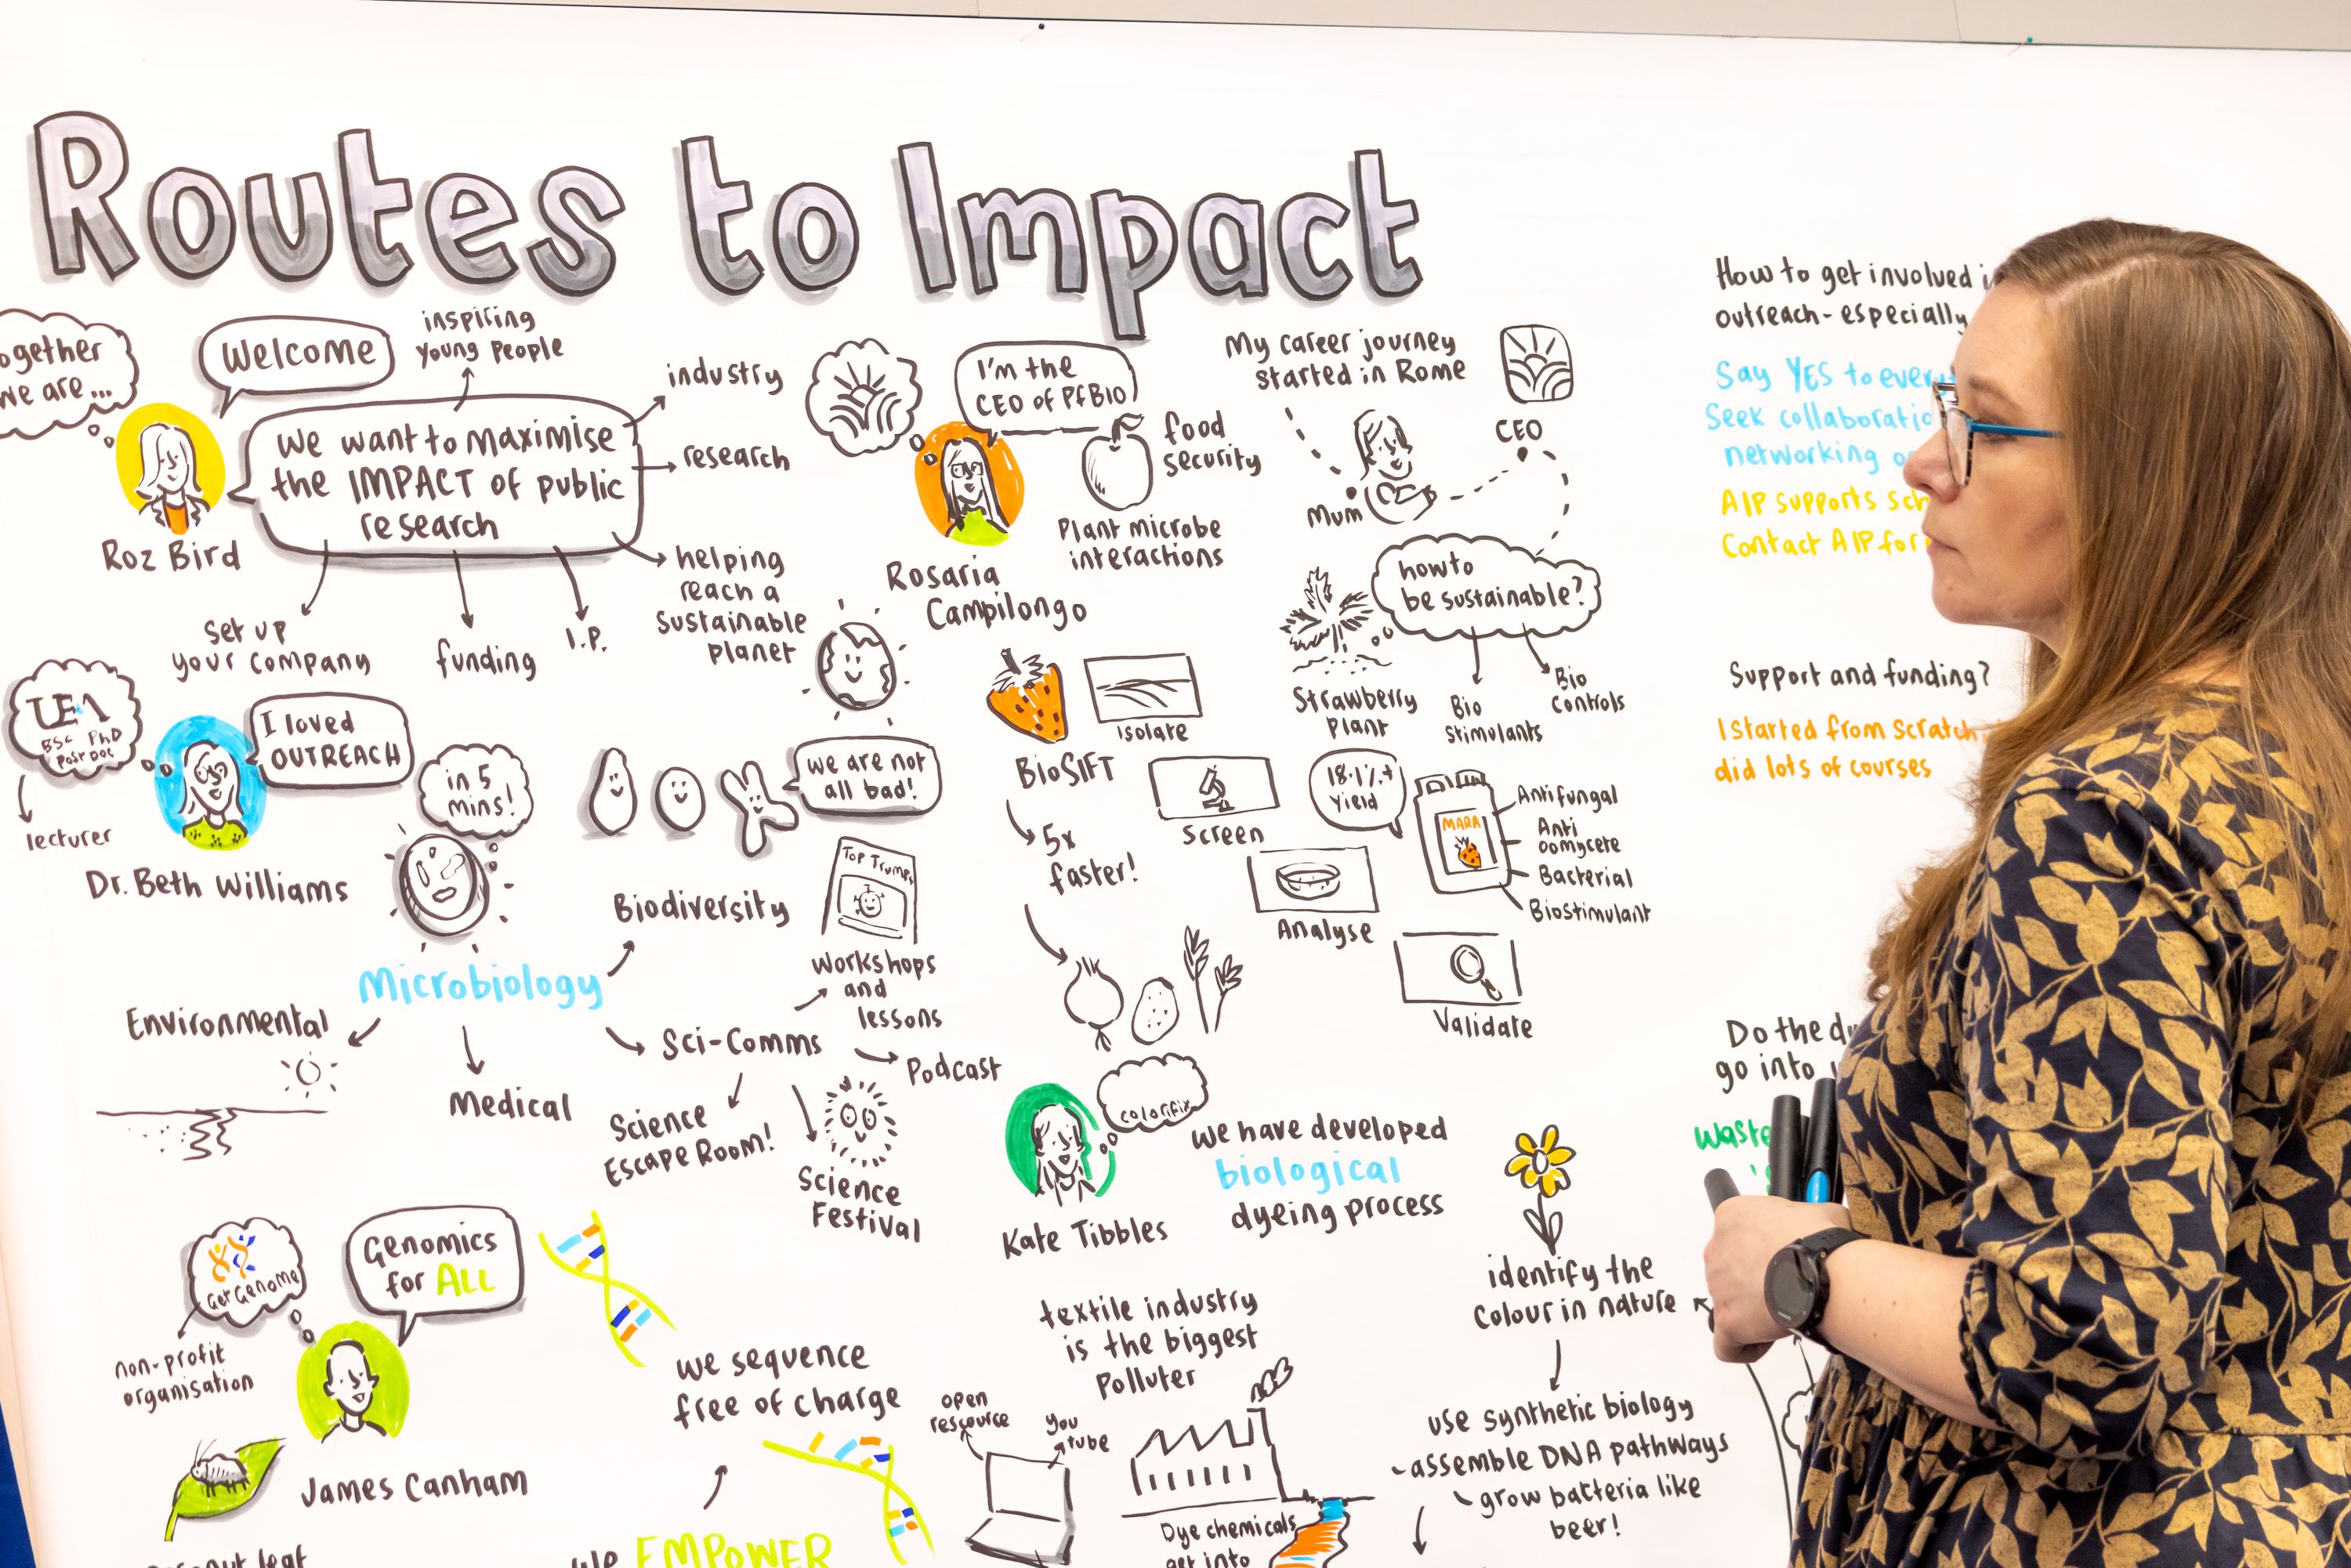 Routes to Impact
ogether
we are...
Welcome
inspiring
young people
industry
We want to maximise
the IMPACT of public
research
research
Roz Bird
helping
reach a
sustainable
planet
set up
your company
funding
I.P.
I'm the
CEO of PfBIO
food
security
Plant microbe
interactions
Rosaria
Campilongo
My career journey
started in Rome
CEO
Mum
how to
be sustainable?
Strawberry
plant
Bio
Stimulants
Bio
Controls
BioSIFT
5x
faster!
Isolate
Screen
Analyse
Validate
18.1%+
Yield
MARA
Antifungal
Anti
oomycete
Bacterial
Biostimulant
UEA
BSC PhD
Post Doc
lecturer
I loved
OUTREACH
Dr. Beth Williams
in 5
mins!
we are not
all bad!
Microbiology
Biodiversity
Environmental
Medical
Sci-Comms
Top Trumps
Workshops
and
lessons
Podcast
Science
Escape Room!
Science
Festival
colorifix
Kate Tibbles
we have developed
biological
dyeing process
textile industry
is the biggest
Polluter
Dye chemicals
get into
identify the
colour in nature
use synthetic biology
-assemble DNA pathways
grow bacteria like
beer!
Get Genome
non-profit
organisation
Genomics
for ALL
James Canham
leaf
we sequence
free of charge
open
rescource
You
tube
we EMPOWER
How to get involved
outreach - especially
Say YES to
Seek
networking
AIP supports
Contact AIP for
Support and funding?
I started from scratch
did lots of courses
Do the
go into
Waste